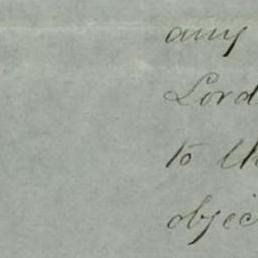 any
Lord
to th
objec